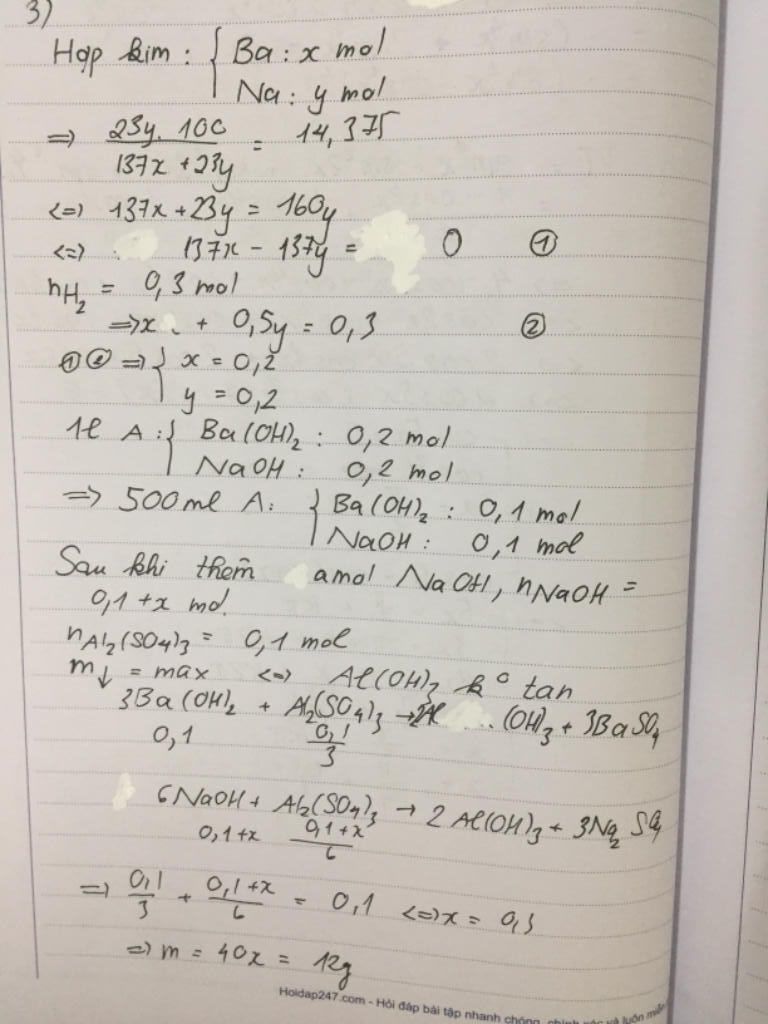 3)
Hợp kim : { Ba : x mol
Na : y mol
=> 23y. 100 / 137x + 23y = 14,375
<=> 137x + 23y = 160y
<=> 137x - 137y = 0 ①
nH₂ = 0,3 mol
=> x + 0,5y = 0,3 ②
① ② => { x = 0,2
y = 0,2
1l A : { Ba(OH)₂ : 0,2 mol
NaOH : 0,2 mol
=> 500ml A : { Ba(OH)₂ : 0,1 mol
NaOH : 0,1 mol
Sau khi thêm amol NaOH, nNaOH =
0,1 + x mol.
nAl₂(SO₄)₃ = 0,1 mol
m↓ = max <=> Al(OH)₃ k° tan
3Ba(OH)₂ + Al₂(SO₄)₃ → 2Al (OH)₃ + 3BaSO₄
0,1 0,1/3
6NaOH + Al₂(SO₄)₃ → 2Al(OH)₃ + 3Na₂SO₄
0,1+x 0,1+x/6
=> 0,1/3 + 0,1+x/6 = 0,1 <=> x = 0,3
=> m = 40x = 12g
Hoidap247.com - Hỏi đáp bài tập nhanh chóng, chính xác và luôn miễn